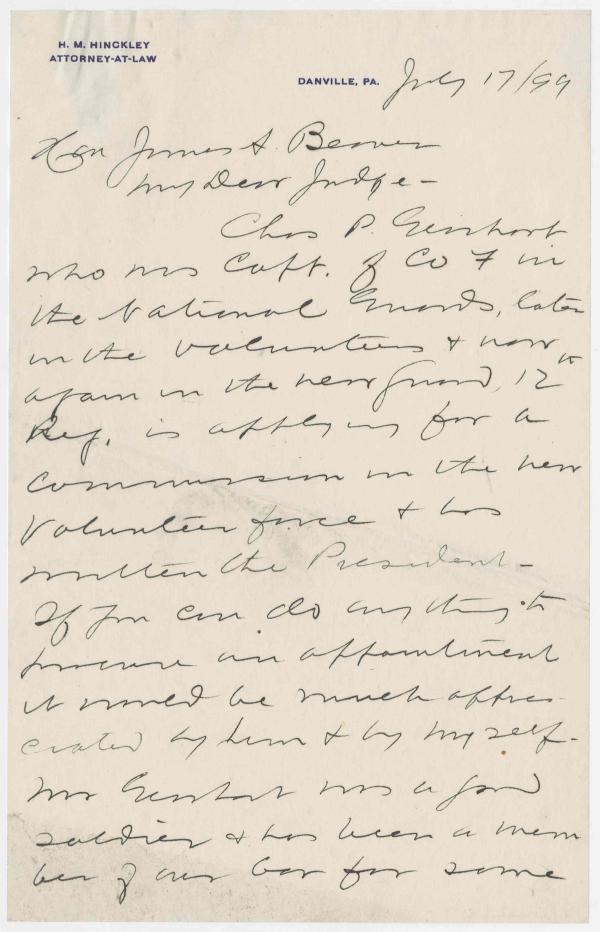 H. M. HINCKLEY
ATTORNEY-AT-LAW
DANVILLE, PA. July 17/99
Hon James A. Beaver
My Dear Judge -
Chas P. Gearhart
who was Capt. of Co F in
the National Guards, later
in the Volunteers & now
again in the new Guard, 12th
Reg. is applying for a
commission in the new
Volunteer force & has
written the President -
If you can do anything to
procure an appointment
it would be much appre-
ciated by him & by myself -
Mr Gearhart was a good
soldier & has been a mem
ber of our bar for some